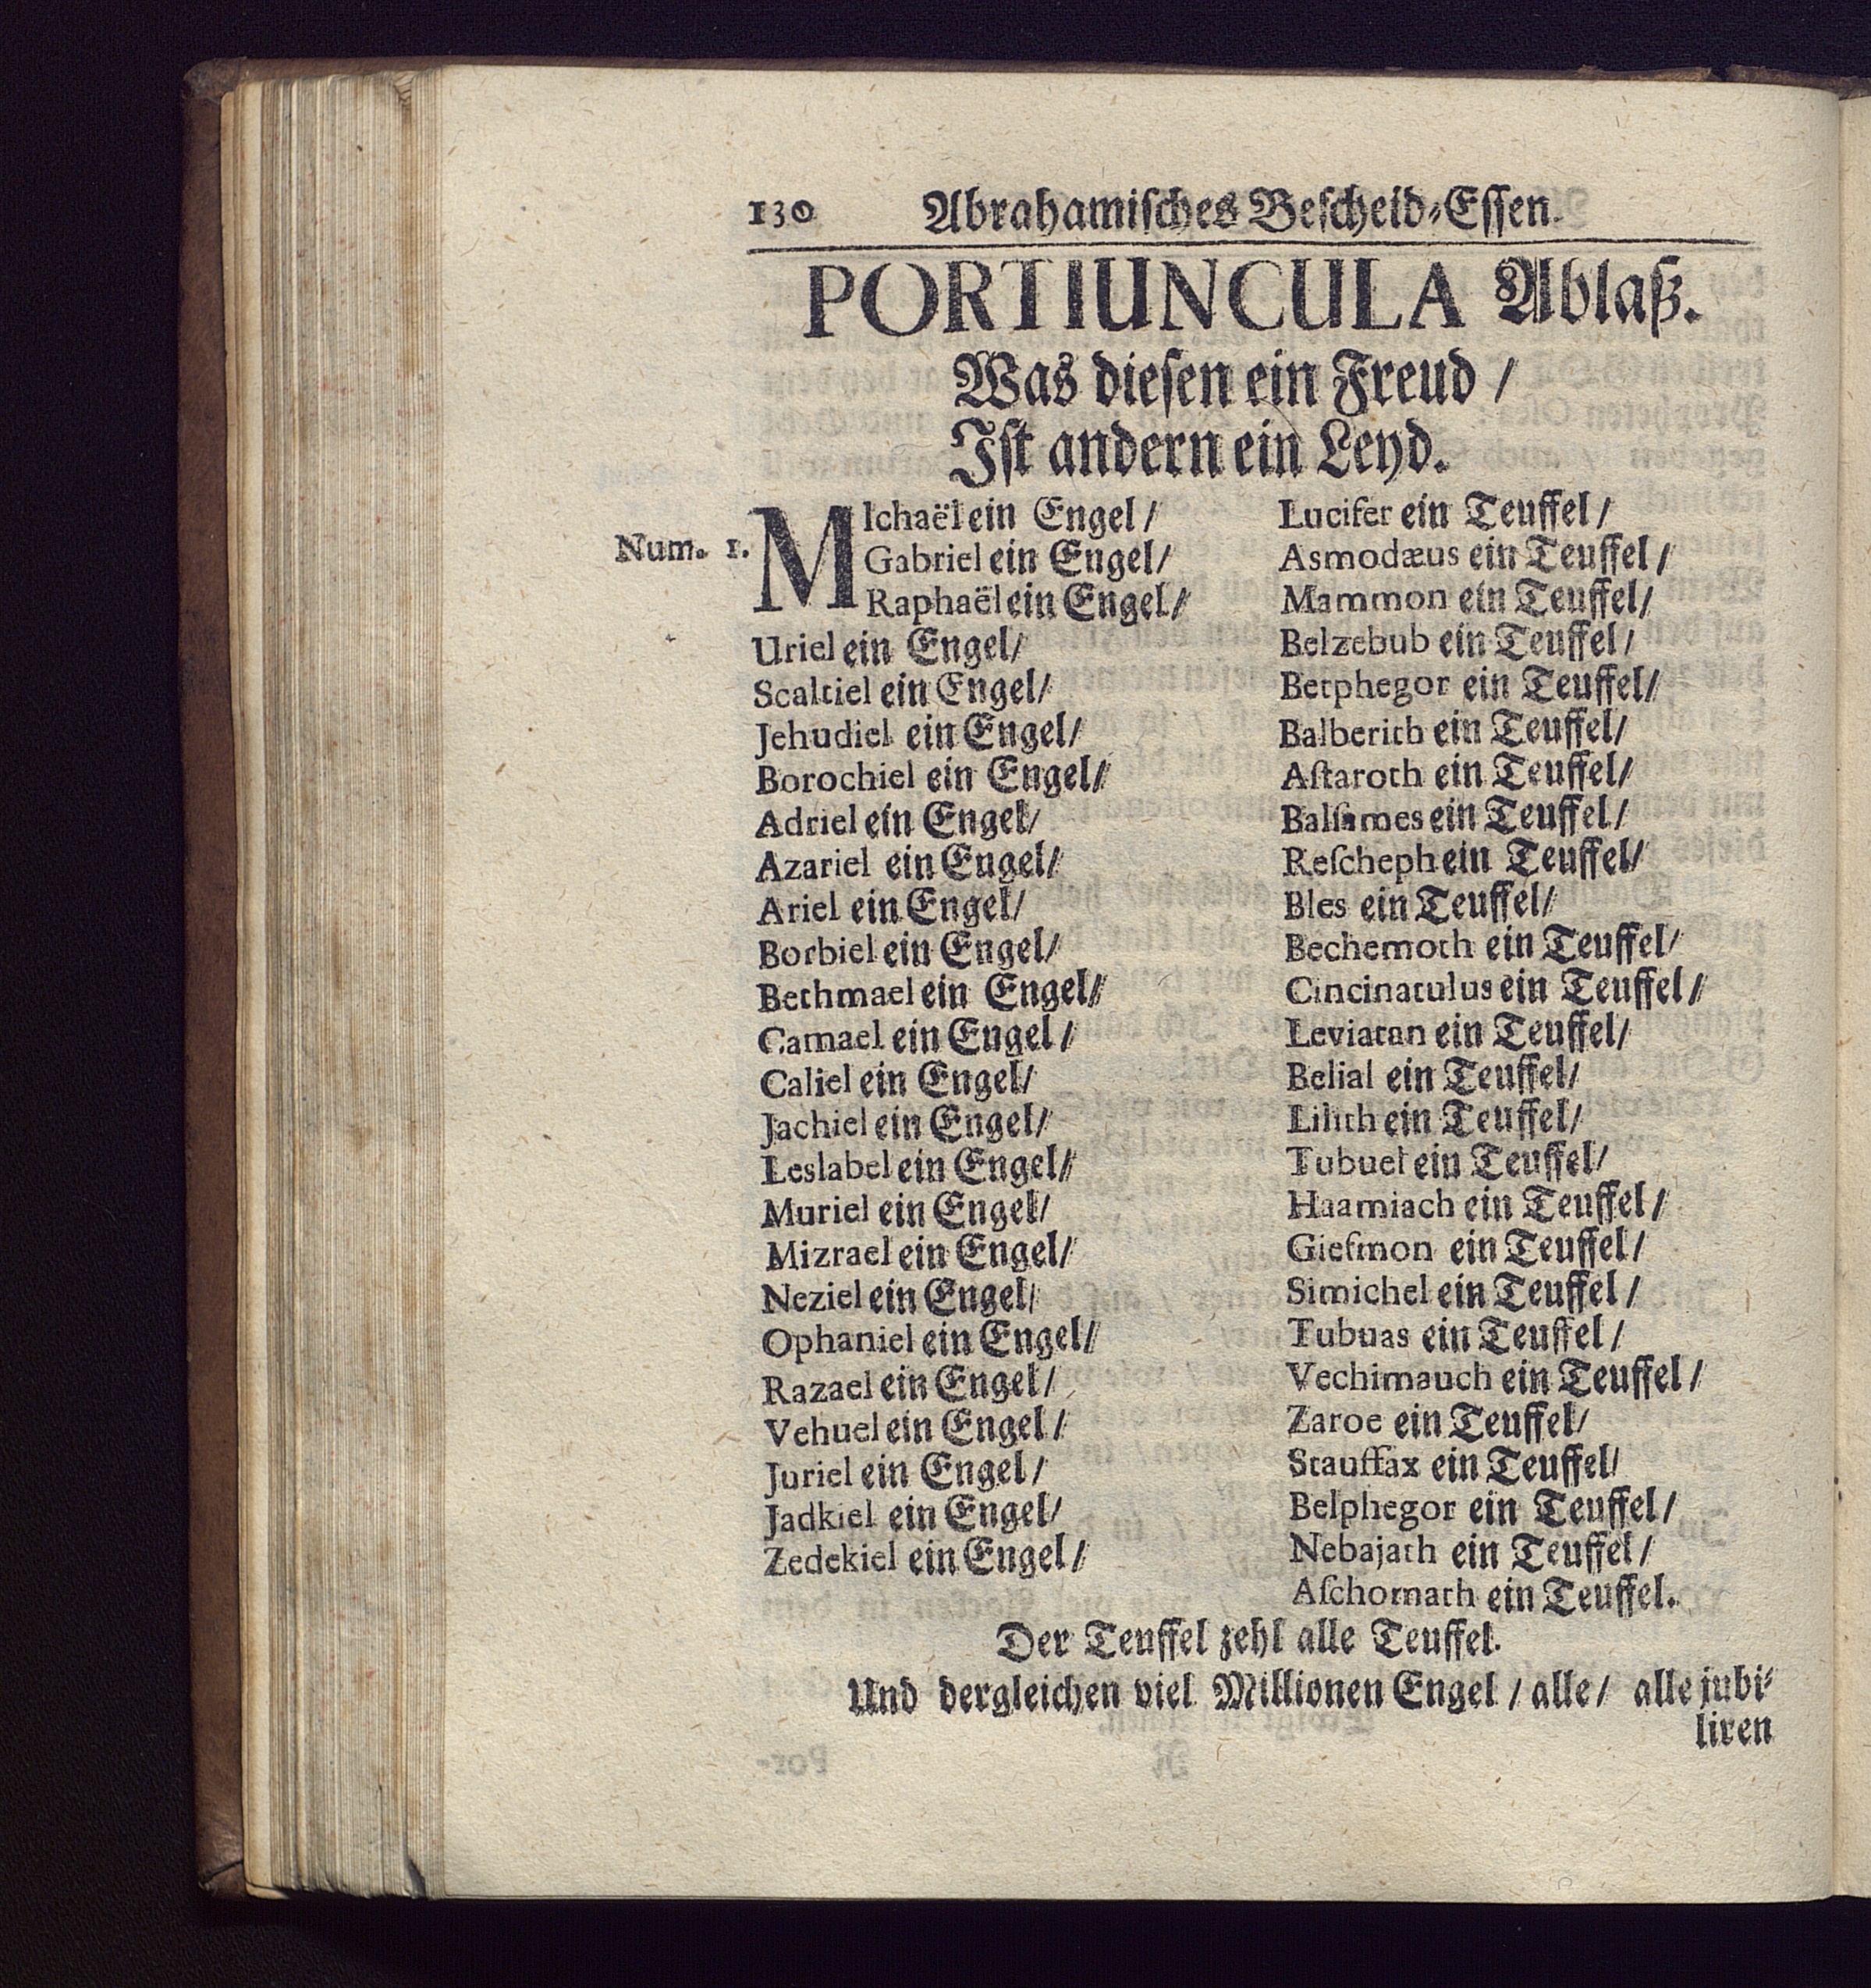 130 Abrahamisches Bescheid-Essen.
PORTIUNCULA Ablaß.
Was diesen ein Freud /
Ist andern ein Leyd.
Num. 1.
MIchaël ein Engel /
Gabriel ein Engel /
Raphaël ein Engel /
Uriel ein Engel /
Scaltiel ein Engel /
Jehudiel ein Engel /
Borochiel ein Engel /
Adriel ein Engel /
Azariel ein Engel /
Ariel ein Engel /
Borbiel ein Engel /
Bethmael ein Engel /
Camael ein Engel /
Caliel ein Engel /
Jachiel ein Engel /
Leslabel ein Engel /
Muriel ein Engel /
Mizrael ein Engel /
Neziel ein Engel /
Ophaniel ein Engel /
Razael ein Engel /
Vehuel ein Engel /
Juriel ein Engel /
Jadkiel ein Engel /
Zedekiel ein Engel /
Lucifer ein Teuffel /
Asmodæus ein Teuffel /
Mammon ein Teuffel /
Belzebub ein Teuffel /
Berphegor ein Teuffel /
Balberith ein Teuffel /
Astaroth ein Teuffel /
Balsames ein Teuffel /
Rescheph ein Teuffel /
Bles ein Teuffel /
Bechemoth ein Teuffel /
Cincinatulus ein Teuffel /
Leviatan ein Teuffel /
Belial ein Teuffel /
Lilith ein Teuffel /
Tubuel ein Teuffel /
Haamiach ein Teuffel /
Giesmon ein Teuffel /
Simichel ein Teuffel /
Tubuas ein Teuffel /
Vechimauch ein Teuffel /
Zaroe ein Teuffel /
Stauffax ein Teuffel /
Belphegor ein Teuffel /
Nebajath ein Teuffel /
Aschomath ein Teuffel.
Der Teuffel zehl alle Teuffel.
Und dergleichen viel Millionen Engel / alle / alle jubi-
liren